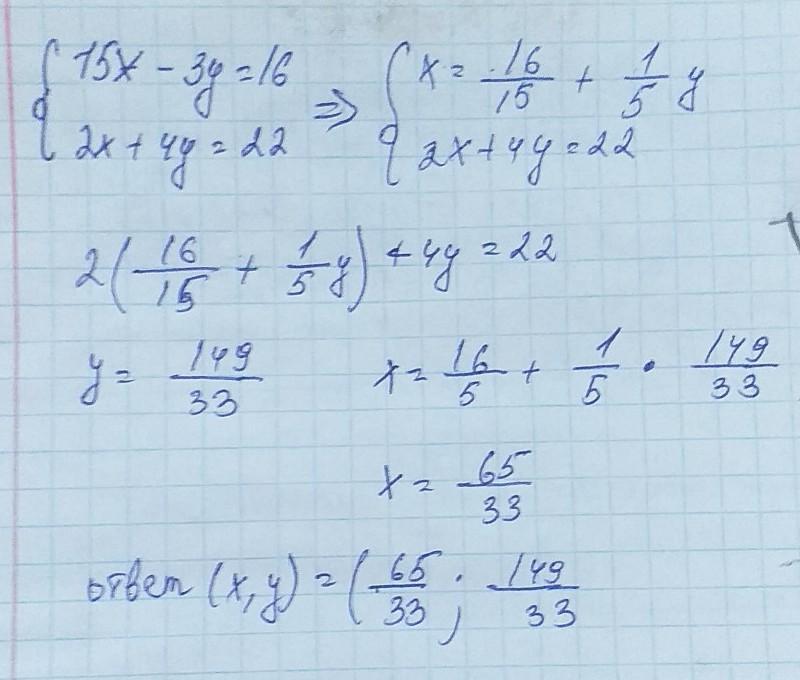 { 15x - 3y = 16 ⇒ { x = 16/15 + 1/5 y
2x + 4y = 22 2x + 4y = 22
2(16/15 + 1/5 y) + 4y = 22
y = 149/33 x = 16/5 + 1/5 · 149/33
x = 65/33
ответ (x, y) = (65/33 ; 149/33